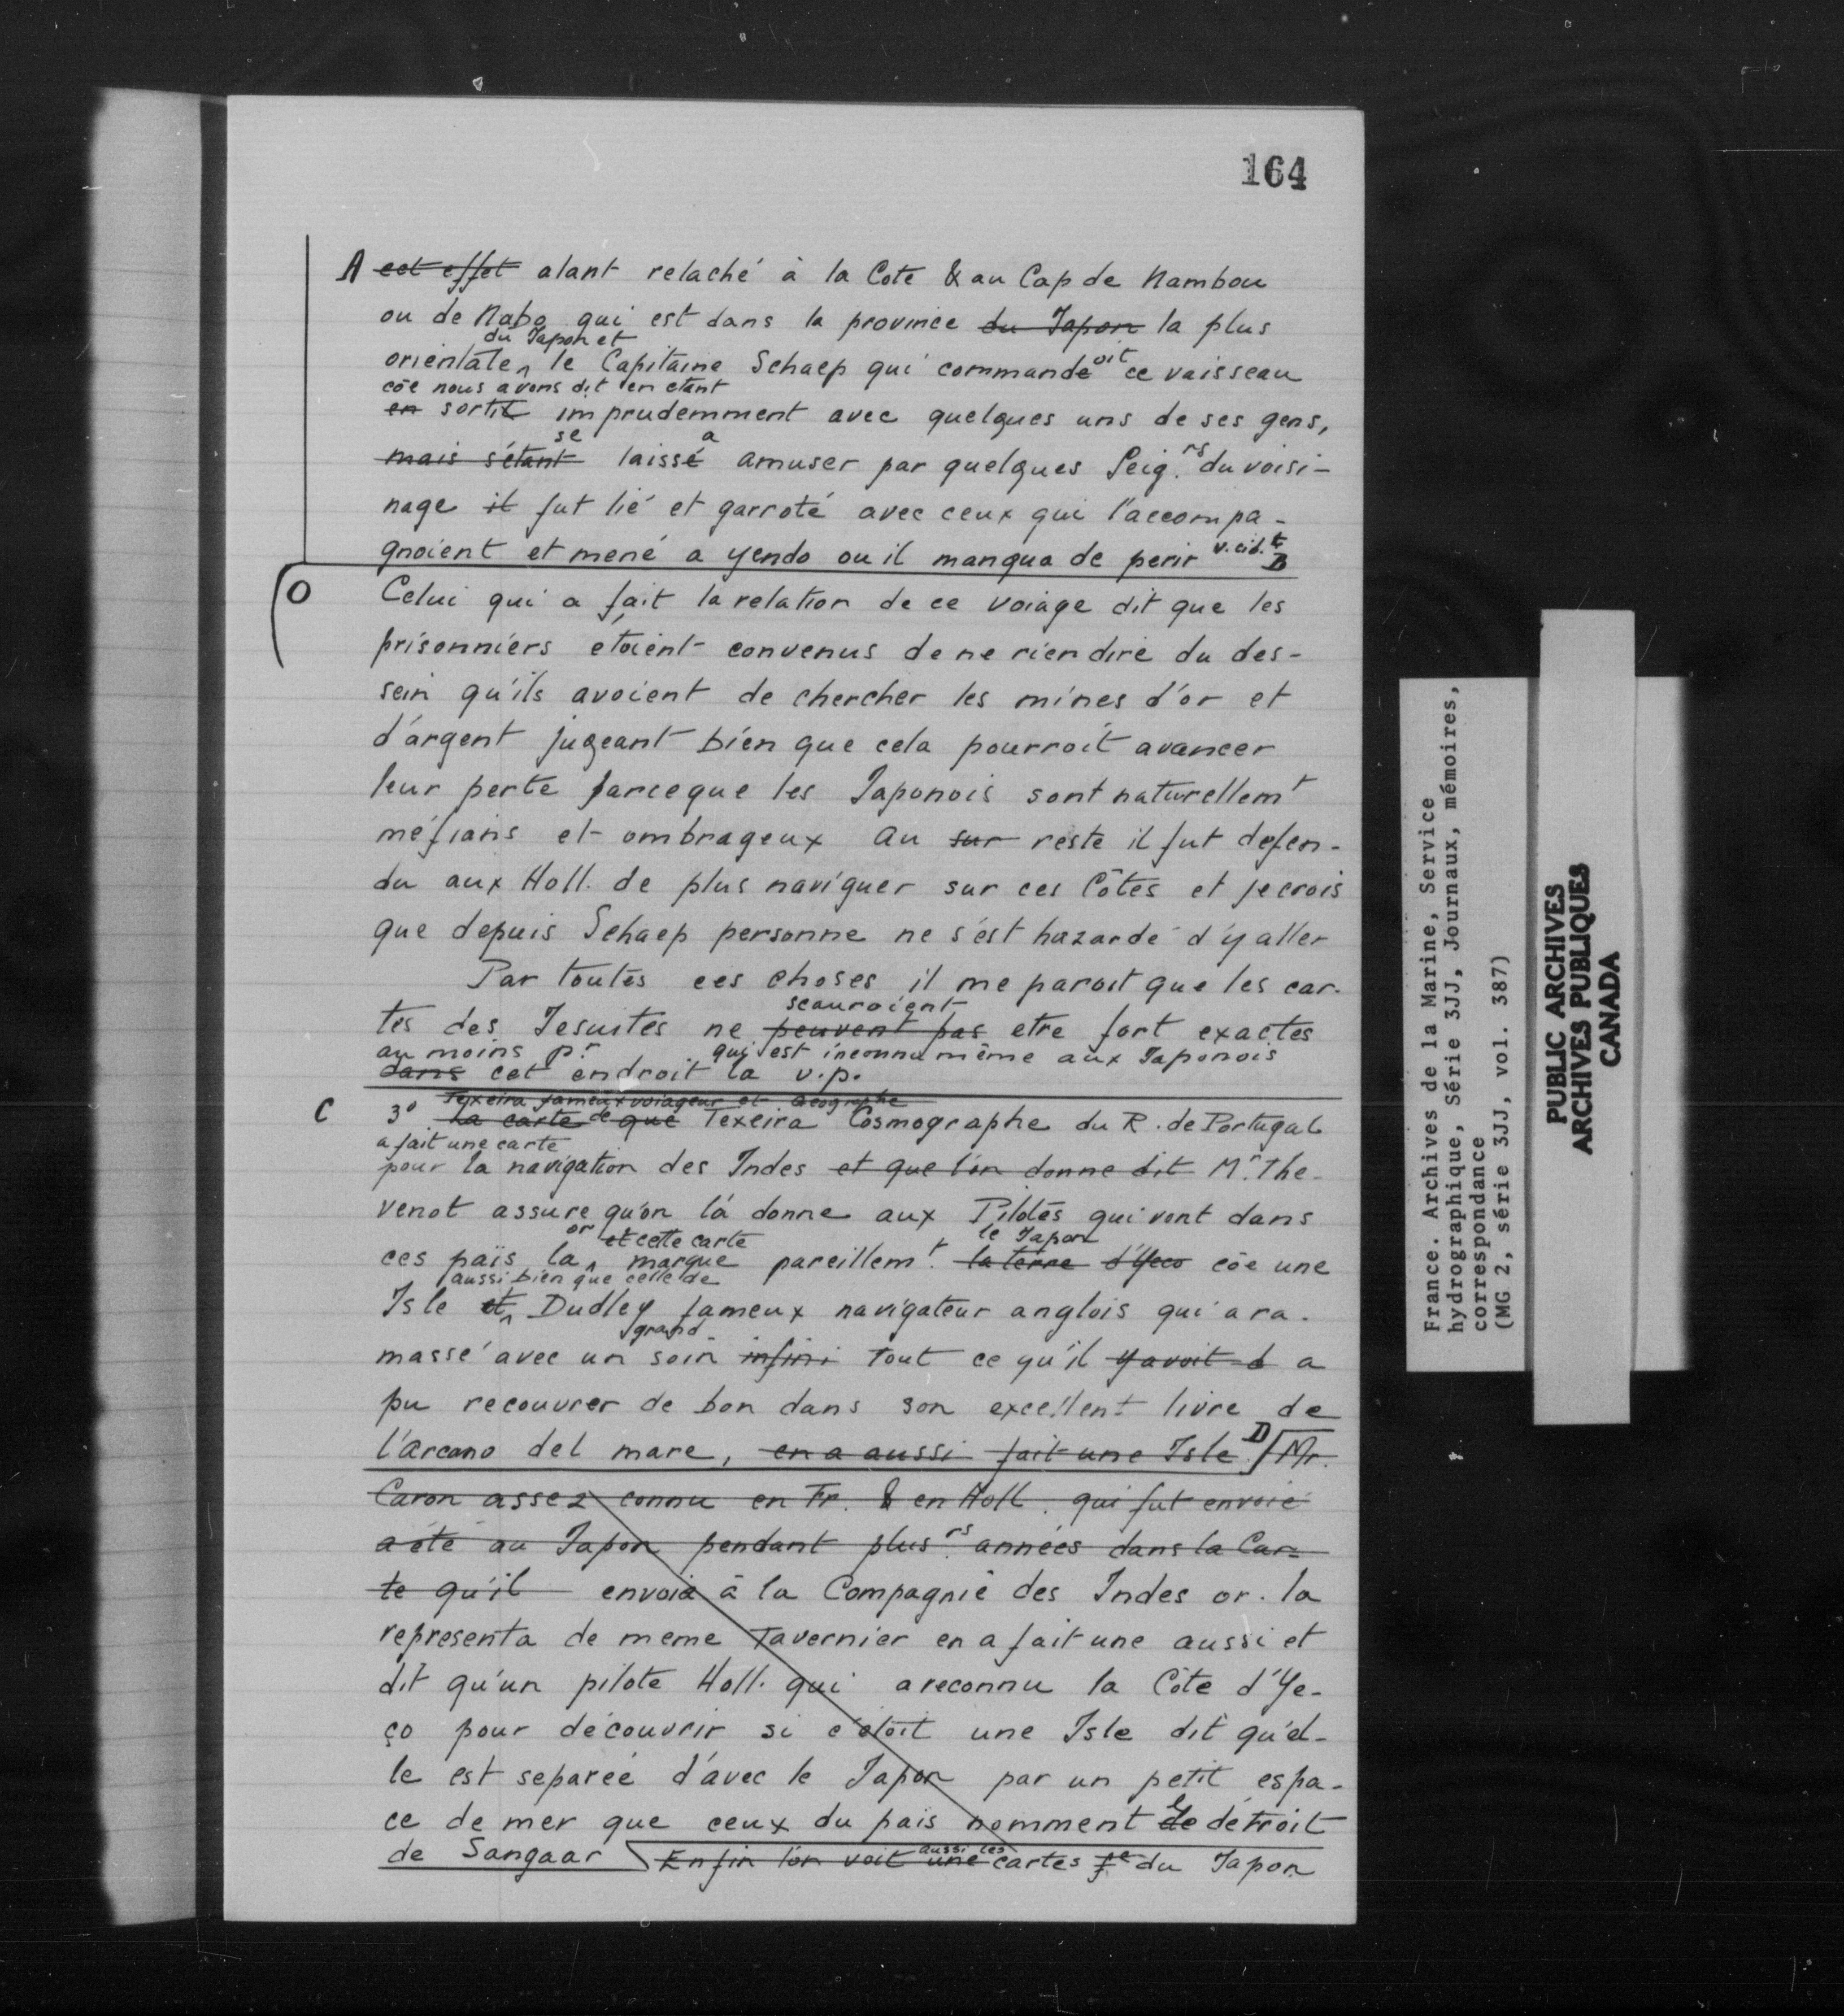 164
A cet effet alant relaché à la Cote & au Cap de Nambou
ou de Nabo qui est dans la province du Japon la plus
du Japon et
orientale le Capitaine Schaep qui commande oit ce vaisseau
cōe nous avons dit en etant
en sortit imprudemment avec quelques uns de ses gens,
se a
mais s'étant laissé amuser par quelques Seig.rs du voisi-
nage il fut lié et garroté avec ceux qui l'accompa-
gnoient et mené a yendo ou il manqua de perir B
O Celui qui a fait la relation de ce voiage dit que les
prisonniers etoient convenus de ne rien dire du des-
sein qu'ils avoient de chercher les mines d'or et
d'argent jugeant bien que cela pourroit avancer
leur perte parceque les Japonois sont naturellemt
méfians et ombrageux au sur reste il fut defen-
du aux Holl. de plus naviguer sur ces Côtes et je crois
que depuis Schaep personne ne s'est hazardé d'y aller
Par toutes ces choses il me paroit que les car-
scauroient
tes des Jesuites ne peuvent pas etre fort exactes
au moins pr qui est inconnu même aux Japonois
dans cet endroit la v.p.
Texeira fameux voiageur et Geographe
C 3o La carte de que Texeira Cosmographe du R. de Portugal
a fait une carte
pour la navigation des Indes et que l'on donne dit Mr. The-
venot assure qu'on la donne aux Pilotes qui vont dans
or et cette carte le Japon
ces païs la marque pareillemt. la terre d'Yeco cōe une
aussi bien que celle de
Isle et Dudley fameux navigateur anglois qui a ra-
grand
massé avec un soin infini tout ce qu'il y avoit d a
pu recouvrer de bon dans son excellent livre de
l'arcano del mare, en a aussi fait une Isle D Mr.
Caron assez connu en Fr. & en Holl. qui fut envoié
a été au Japon pendant plusrs. années dans la Car-
te qu'il envoia à la Compagnie des Indes or. la
representa de meme Tavernier en a fait une aussi et
dit qu'un pilote Holl. qui a reconnu la Côte d'Ye-
ço pour découvrir si c'étoit une Isle dit qu'el-
le est separée d'avec le Japon par un petit espa-
ce de mer que ceux du pais nomment de le détroit
aussi les
de Sangaar Enfin l'on voit une cartes du Japon
France. Archives de la Marine, Service
hydrographique, Série 3JJ, Journaux, mémoires,
correspondance
(MG 2, série 3JJ, vol. 387)
PUBLIC ARCHIVES
ARCHIVES PUBLIQUES
CANADA